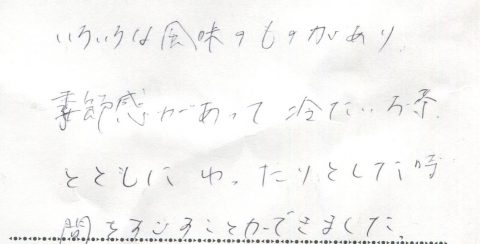 いろいろな風味のものがあり
季節感があって冷たいお茶
とともにゆったりとした時
間をすごすことができました。